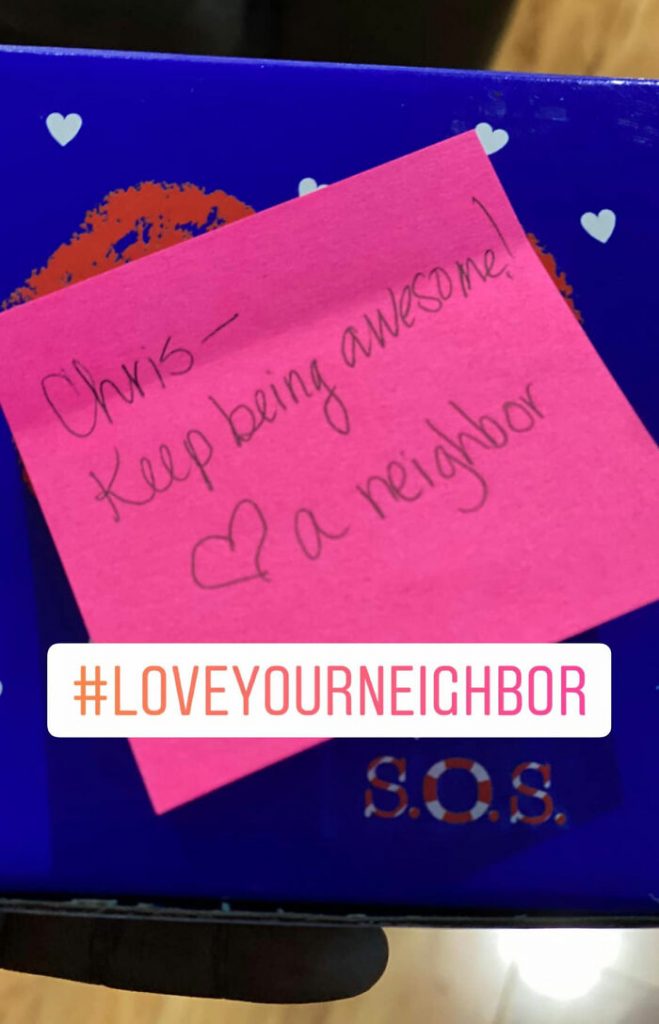 Chris—
Keep being awesome!
♡ a neighbor
#LOVEYOURNEIGHBOR
S.O.S.